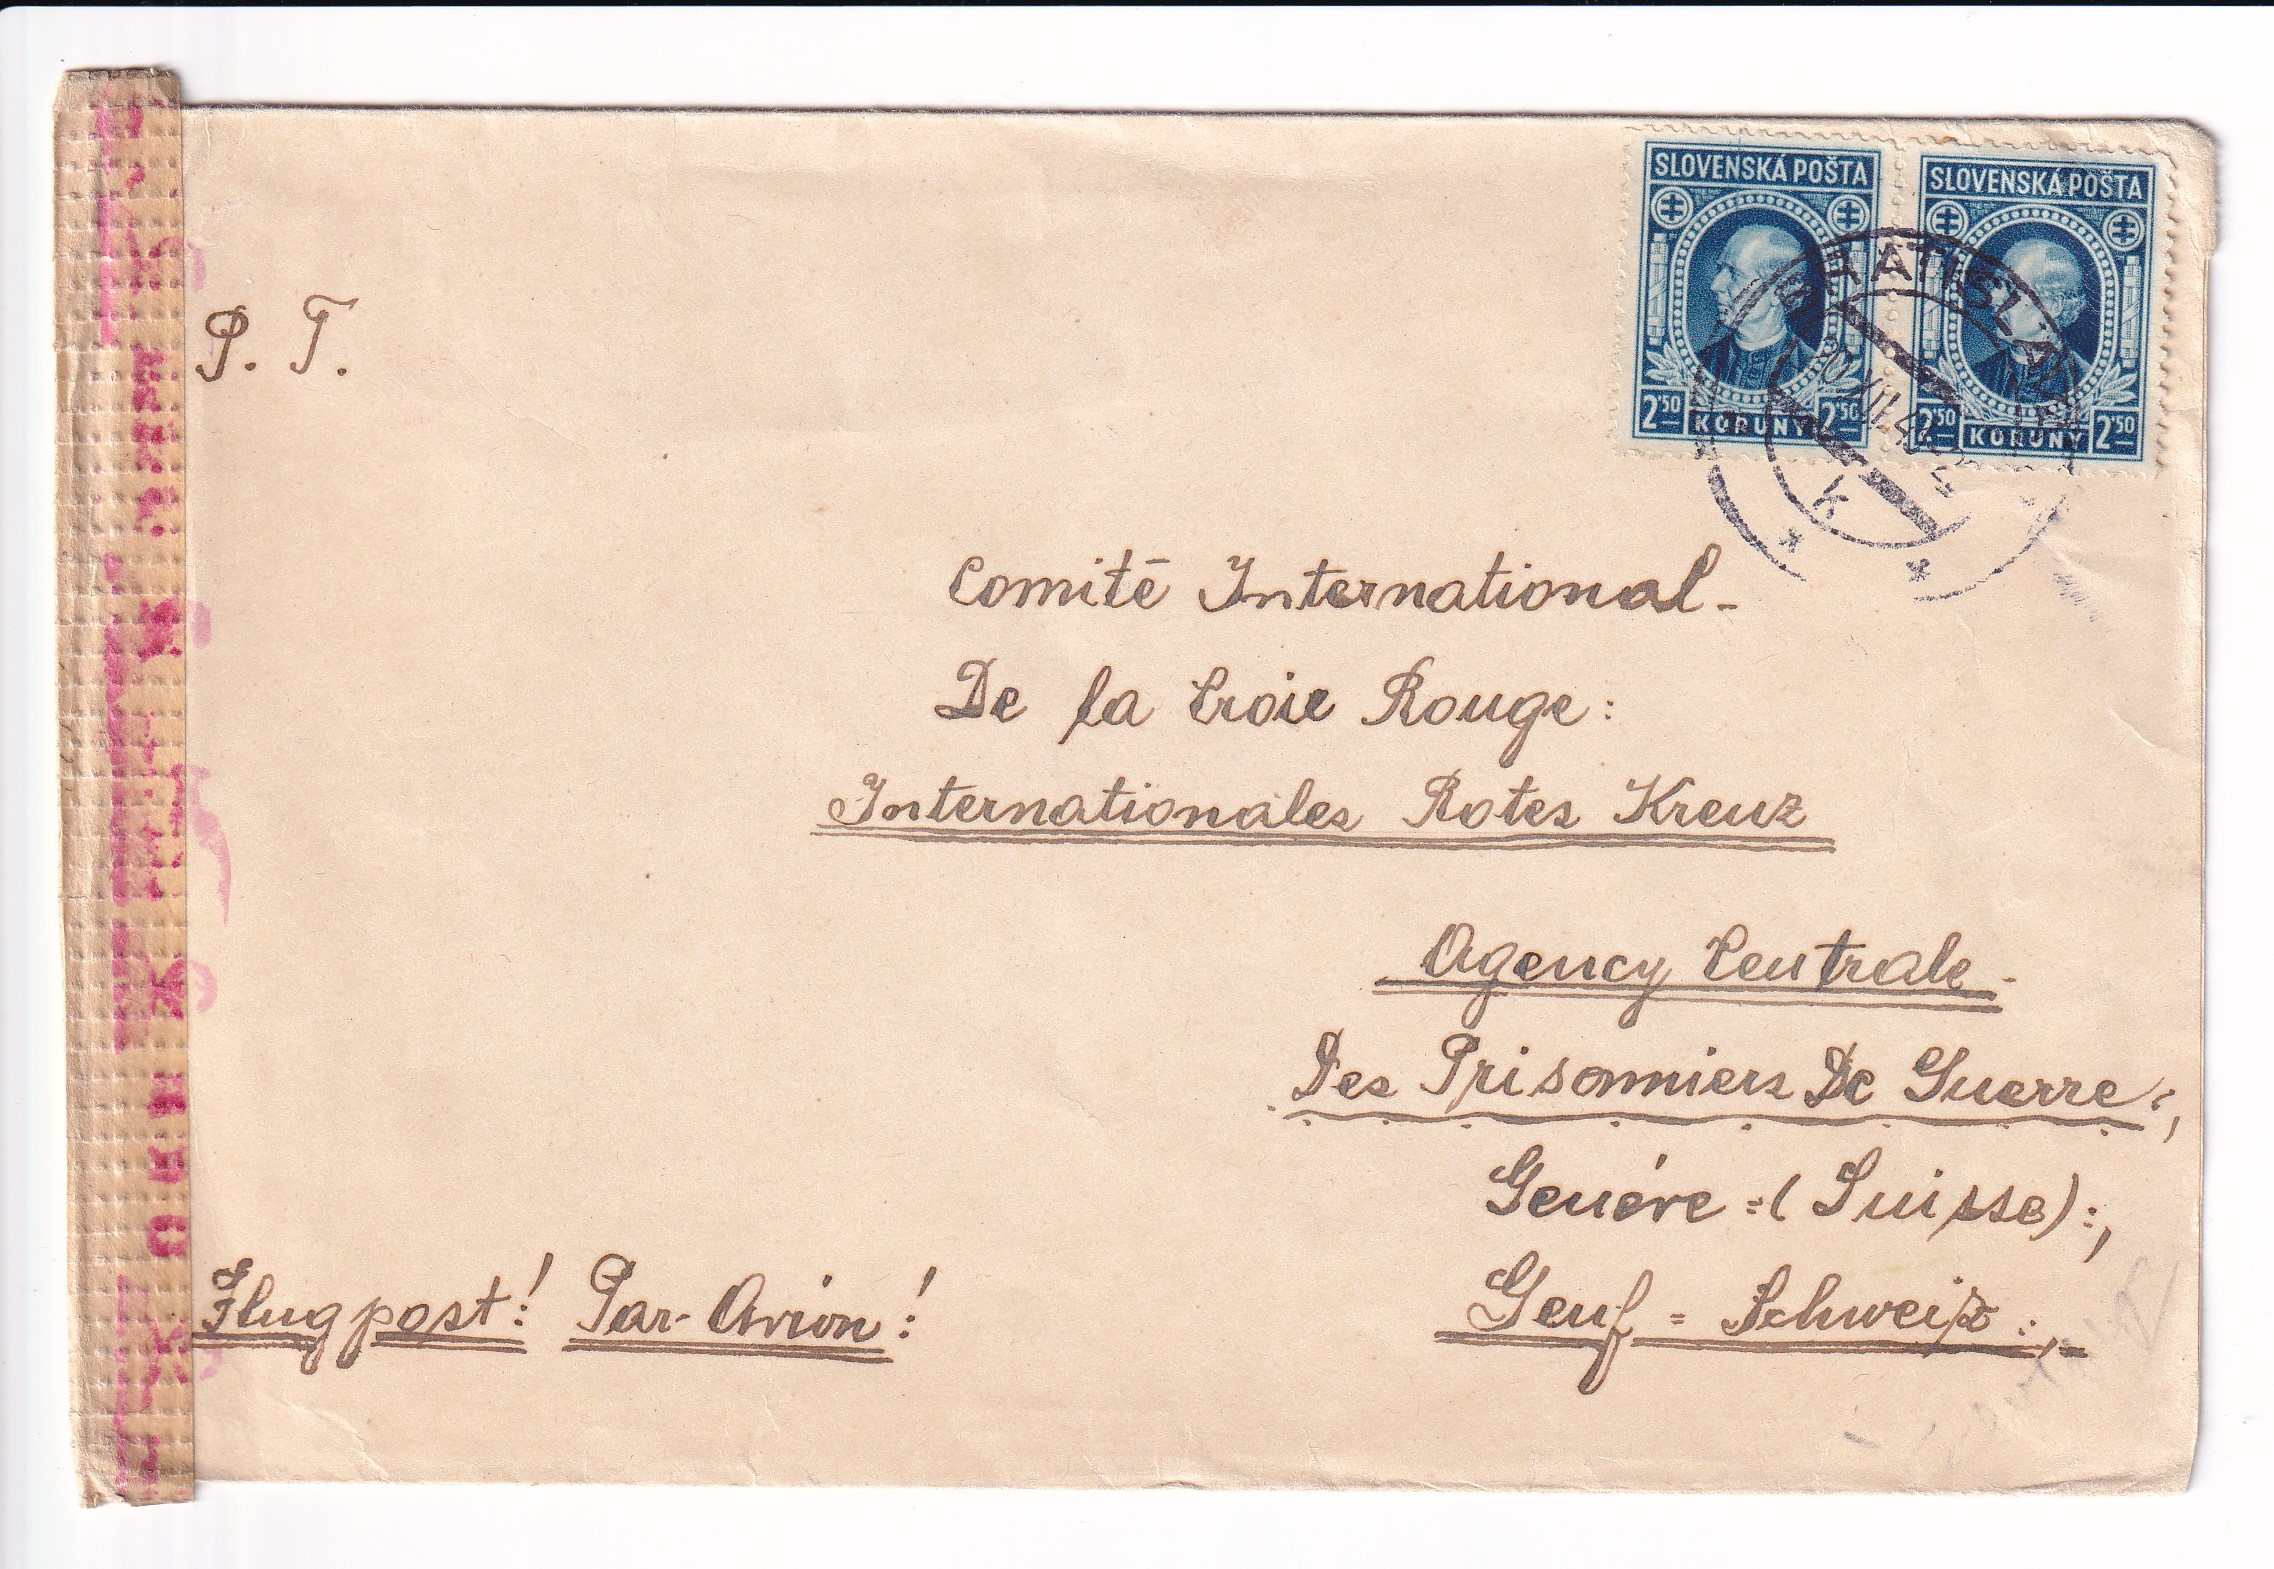 SLOVENSKÁ POŠTA
SLOVENSKÁ POŠTA
2'50 KORUNY 2'50
2'50 KORUNY 2'50
BRATISLAVA
P. T.
Comité International -
De la Croie Rouge:
Internationales Rotes Kreuz
Agency Centrale -
Des Prisonniers De Guerre:,
Genéve =( Suisse):,
Genf = Schweiz:,-
Flugpost! Par-Avion!